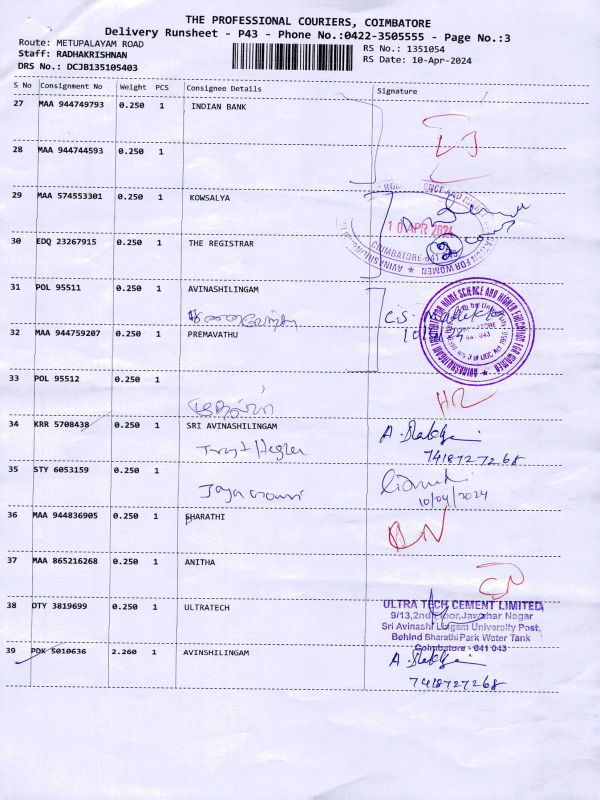 THE PROFESSIONAL COURIERS, COIMBATORE
Delivery Runsheet - P43 - Phone No.:0422-3505555 - Page No.:3
Route: METUPALAYAM ROAD
Staff: RADHAKRISHNAN
DRS No.: DCJB135105403
RS No.: 1351054
RS Date: 10-Apr-2024
S No Consignment No Weight PCS Consignee Details Signature
27 MAA 944749793 0.250 1 INDIAN BANK
28 MAA 944744593 0.250 1
29 MAA 574553301 0.250 1 KOWSALYA
10 APR 2024
30 EDQ 23267915 0.250 1 THE REGISTRAR
COIMBATORE-641 043
31 POL 95511 0.250 1 AVINASHILINGAM
32 MAA 944759207 0.250 1 PREMAVATHU
AVINASHILINGAM INSTITUTE FOR HOME SCIENCE AND HIGHER EDUCATION FOR WOMEN
33 POL 95512 0.250 1
34 KRR 5708438 0.250 1 SRI AVINASHILINGAM
7418727268
35 STY 6053159 0.250 1
10/04/2024
36 MAA 944836905 0.250 1 BHARATHI
37 MAA 865216268 0.250 1 ANITHA
38 DTY 3819699 0.250 1 ULTRATECH
ULTRA TECH CEMENT LIMITED
9/13,2nd Floor,Jawahar Nagar
Sri Avinashi Lingam University Post,
Behind Bharathi Park Water Tank
Coimbatore - 641 043
39 PDK 5010636 2.260 1 AVINSHILINGAM
7418727268